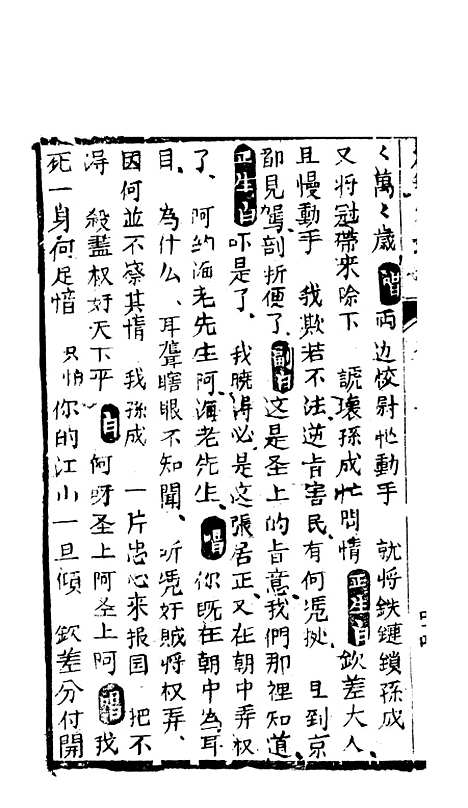 〻萬〻歲 唱 両边校尉忙動手 就将鉄鏈鎖孫成
又将冠帶来除下 諕壞孫成忙問情 正生白 欽差大人、
且慢動手 我欺若不法逆旨害民、有何凴拠 且到京
部見駕剖折便了、副白 这是圣上的旨意、我們那裡知道、
正生白 吓是了、我曉淂必是这張居正、又在朝中弄权
了、阿约海老先生阿、海老先生、唱 你既在朝中為耳
目、為什么、耳聾瞎眼不知聞、听凴奸賊将权弄、
因何並不察其情 我孫成 一片忠心来报国 把不
淂 殺盡权奸天下平 白 阿呀圣上阿圣上阿 唱 我
死一身何足惜 只怕你的江山一旦傾 欽差分付開